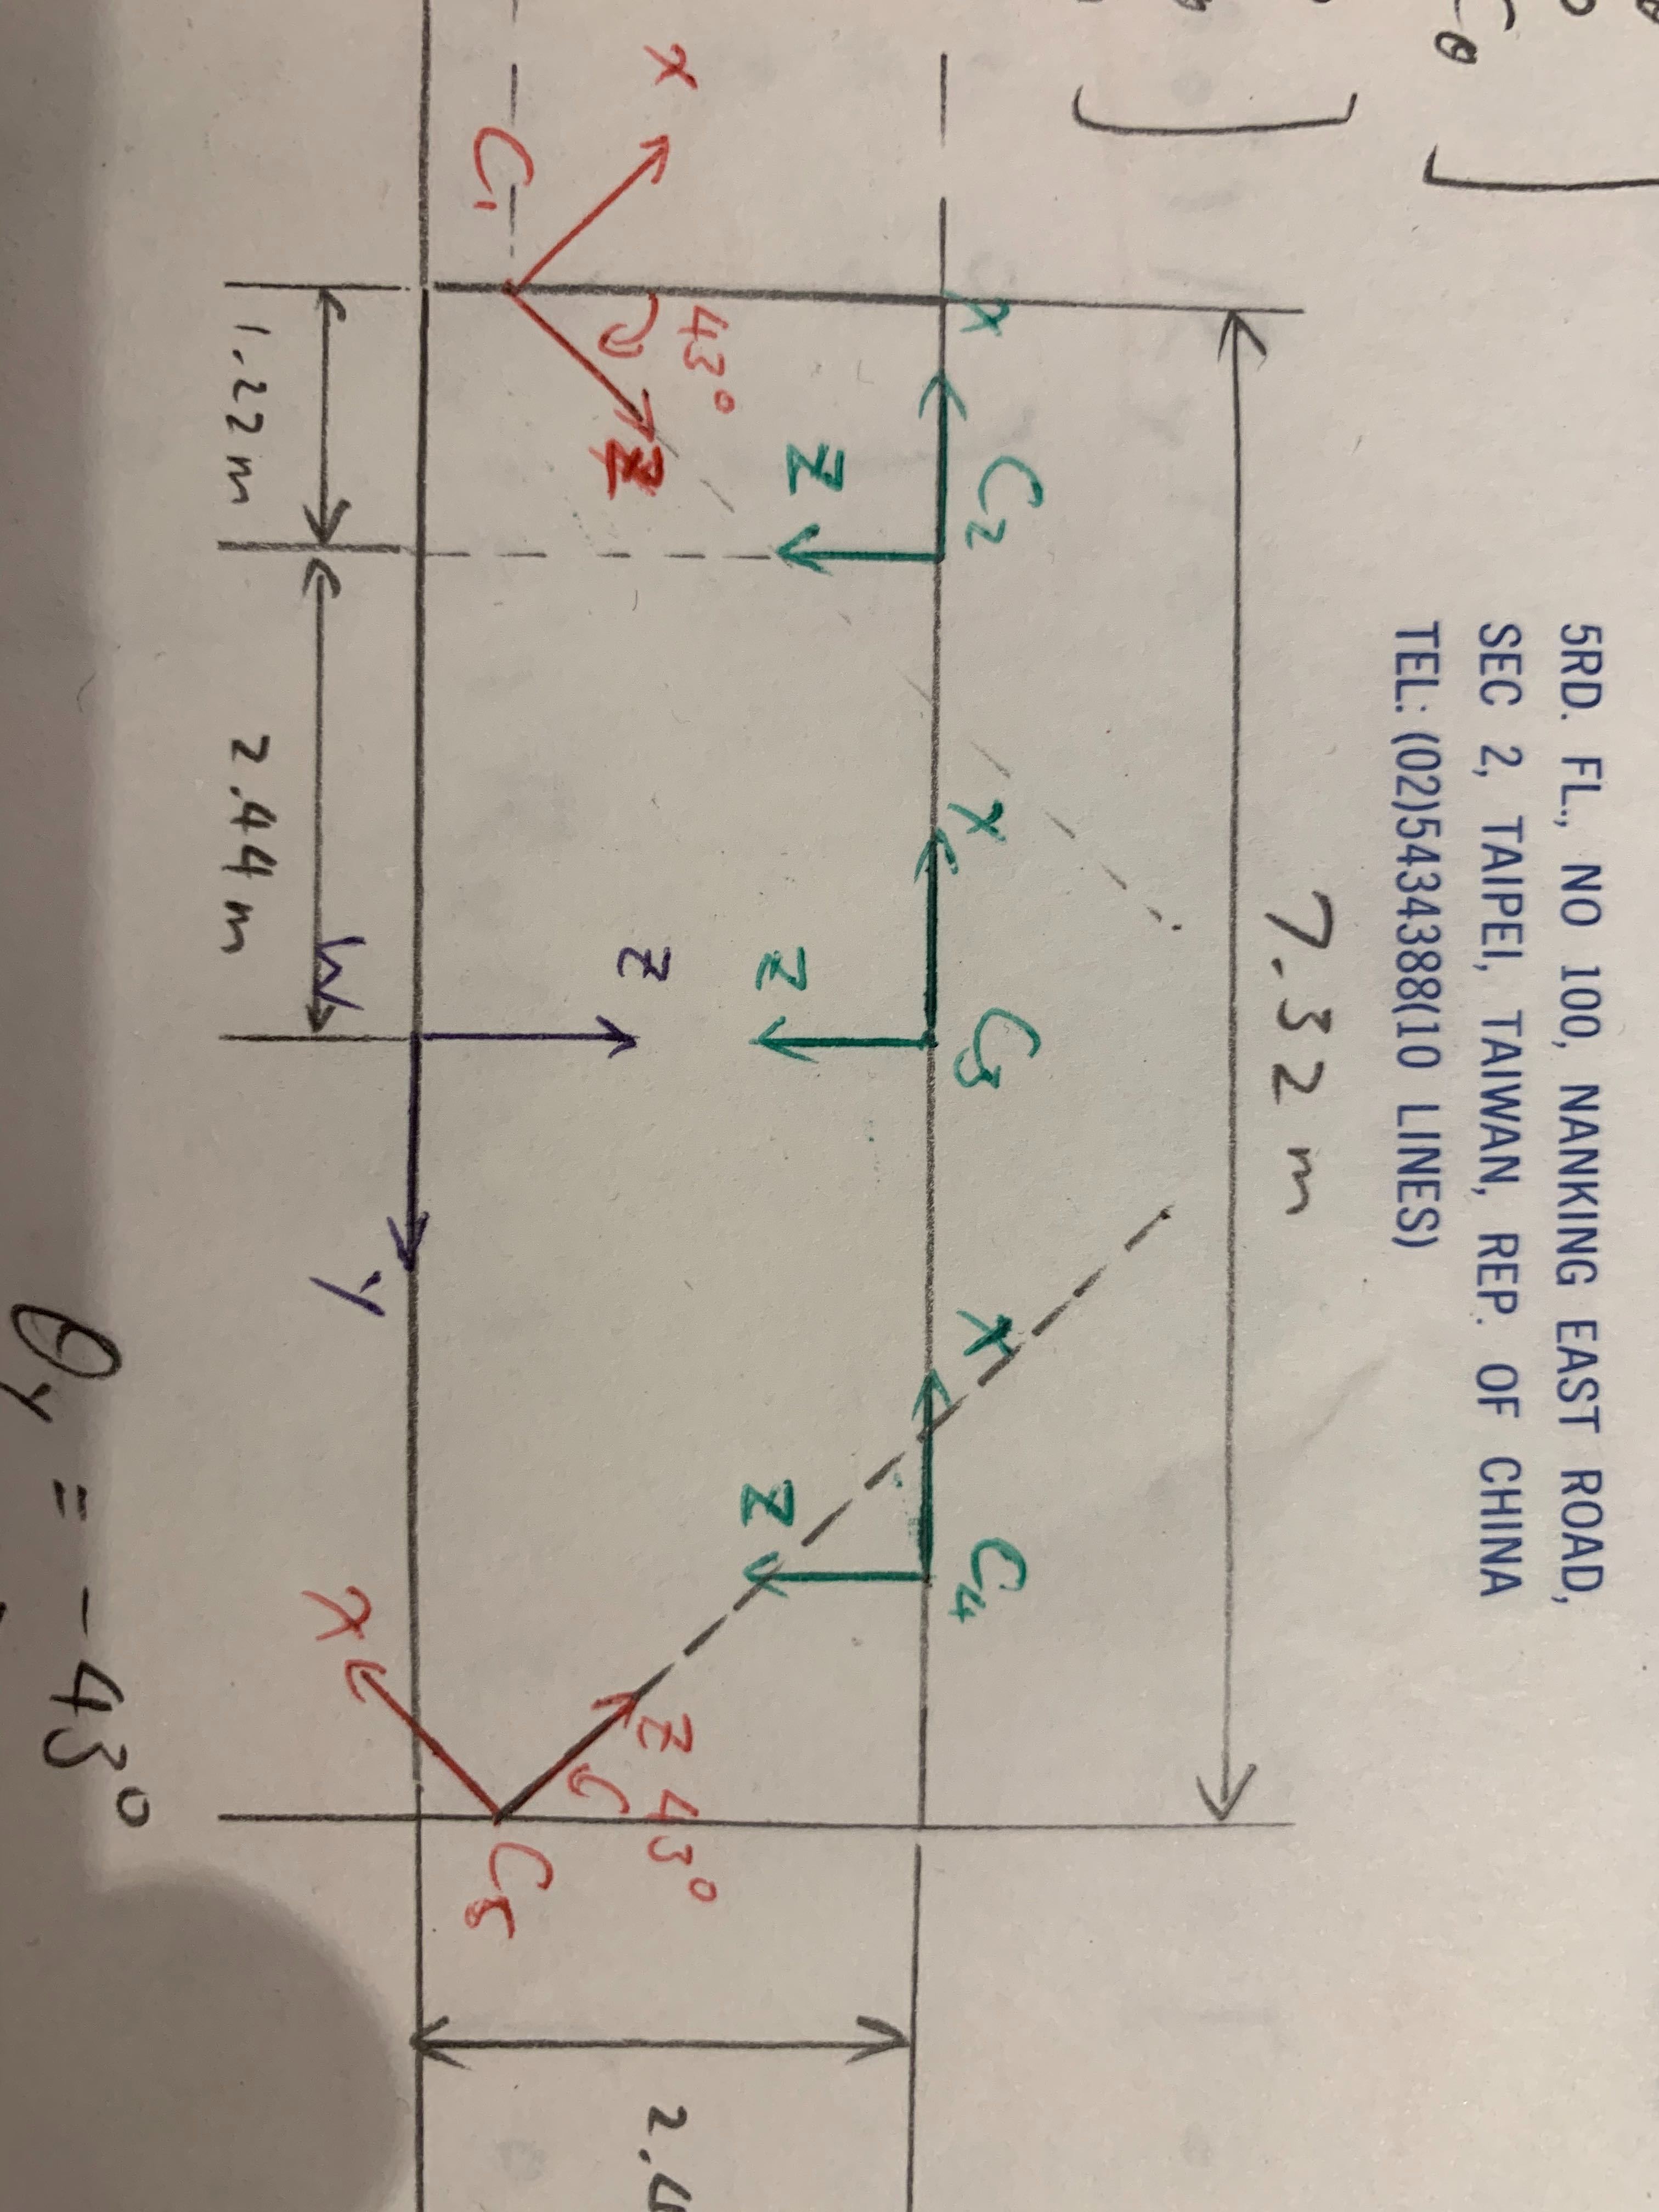 5RD. FL., NO 100, NANKING EAST ROAD,
SEC 2, TAIPEI, TAIWAN, REP. OF CHINA
TEL: (02)5434388(10 LINES)
θ
7.32 m
X C2 X C3 X C4
Z Z Z
43° Z 43°
X Z Z 2.4
C1 C5
W Y X
1.22 m 2.44 m
θY = -43°